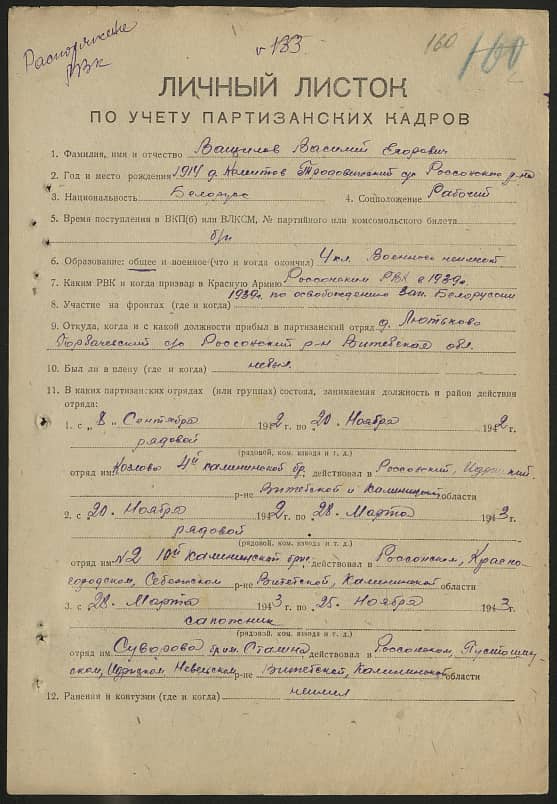 Распоряжение
РВК
v 133
160
160
ЛИЧНЫЙ ЛИСТОК
ПО УЧЕТУ ПАРТИЗАНСКИХ КАДРОВ
1. Фамилия, имя и отчество Ващилов Василий Егорович
2. Год и место рождения 1914 д. с/с Россонского р-на
3. Национальность Белорусс 4. Соцположение Рабочий
5. Время поступления в ВКП(б) или ВЛКСМ, № партийного или комсомольского билета
б/п
6. Образование: общее и военное (что и когда окончил) 4 кл. Военного неимеет
7. Каким РВК и когда призван в Красную Армию Россонским РВК в 1939г.
8. Участие на фронтах (где и когда) 1939г. по освобождению Зап. Белоруссии
9. Откуда, когда и с какой должности прибыл в партизанский отряд д. Лютьково
Горбачевский с/с Россонский р-н Витебская обл.
10. Был ли в плену (где и когда) небыл.
11. В каких партизанских отрядах (или группах) состоял, занимаемая должность и район действия
отряда:
1. с „8„ Сентября 1942 г. по 20. Ноября 1942 г.
рядовой
(рядовой, ком. взвода и т. д.)
отряд им. Козлово 4й калининской бр. действовал в Россонский, Идрицкий.
р-не Витебской и Калининской области
2. с 20. Ноября 1942 г. по 28. Марта 1943 г.
рядовой
(рядовой, ком. взвода и т. д.)
отряд им. N2 10й Калининской бриг. действовал в Россонском, Красно-
городском, Себежском р-не Витебской, Калининской области
3. с 28. Марта 1943 г. по 25. Ноября 1943 г.
сапожник
(рядовой, ком. взвода и т. д.)
отряд им. Суворова бр им. Сталина действовал в Россонском, Пустошин-
ском, Идрицком Невельском р-не Витебской, Калининской области
12. Ранения и контузии (где и когда) неимел